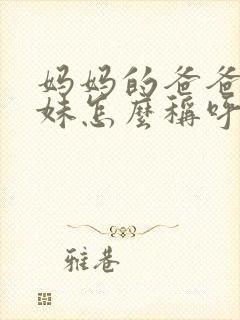 妈妈的爸爸
妹怎麼稱呼
雅巷